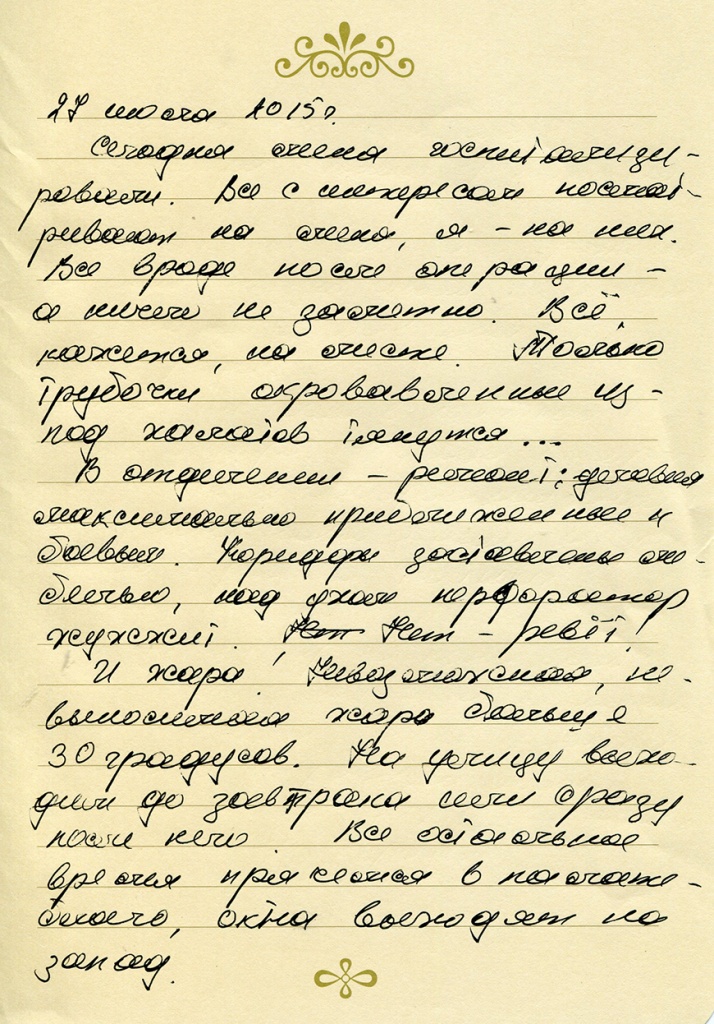 27 июля 2015г.
Сегодня меня госпитализи-
ровали. Все с интересом посмат-
ривают на меня, я - на них.
Все вроде после операции -
а ничего не заметно. Всё,
кажется, на месте. Только
трубочки окровавленные из-
под халатов тянутся...
В отделении - ремонт: условия
максимально приближенные к
боевым. Коридоры заставлены ме-
белью, над ухом перфоратор
жужжит. Нет Нет - ревёт!
И жара! Невозможная, не-
выносимая жара больше
30 градусов. На улицу выхо-
дим до завтрака или сразу
после него. Все остальное
время прячемся в палате.
окна выходят на
запад.